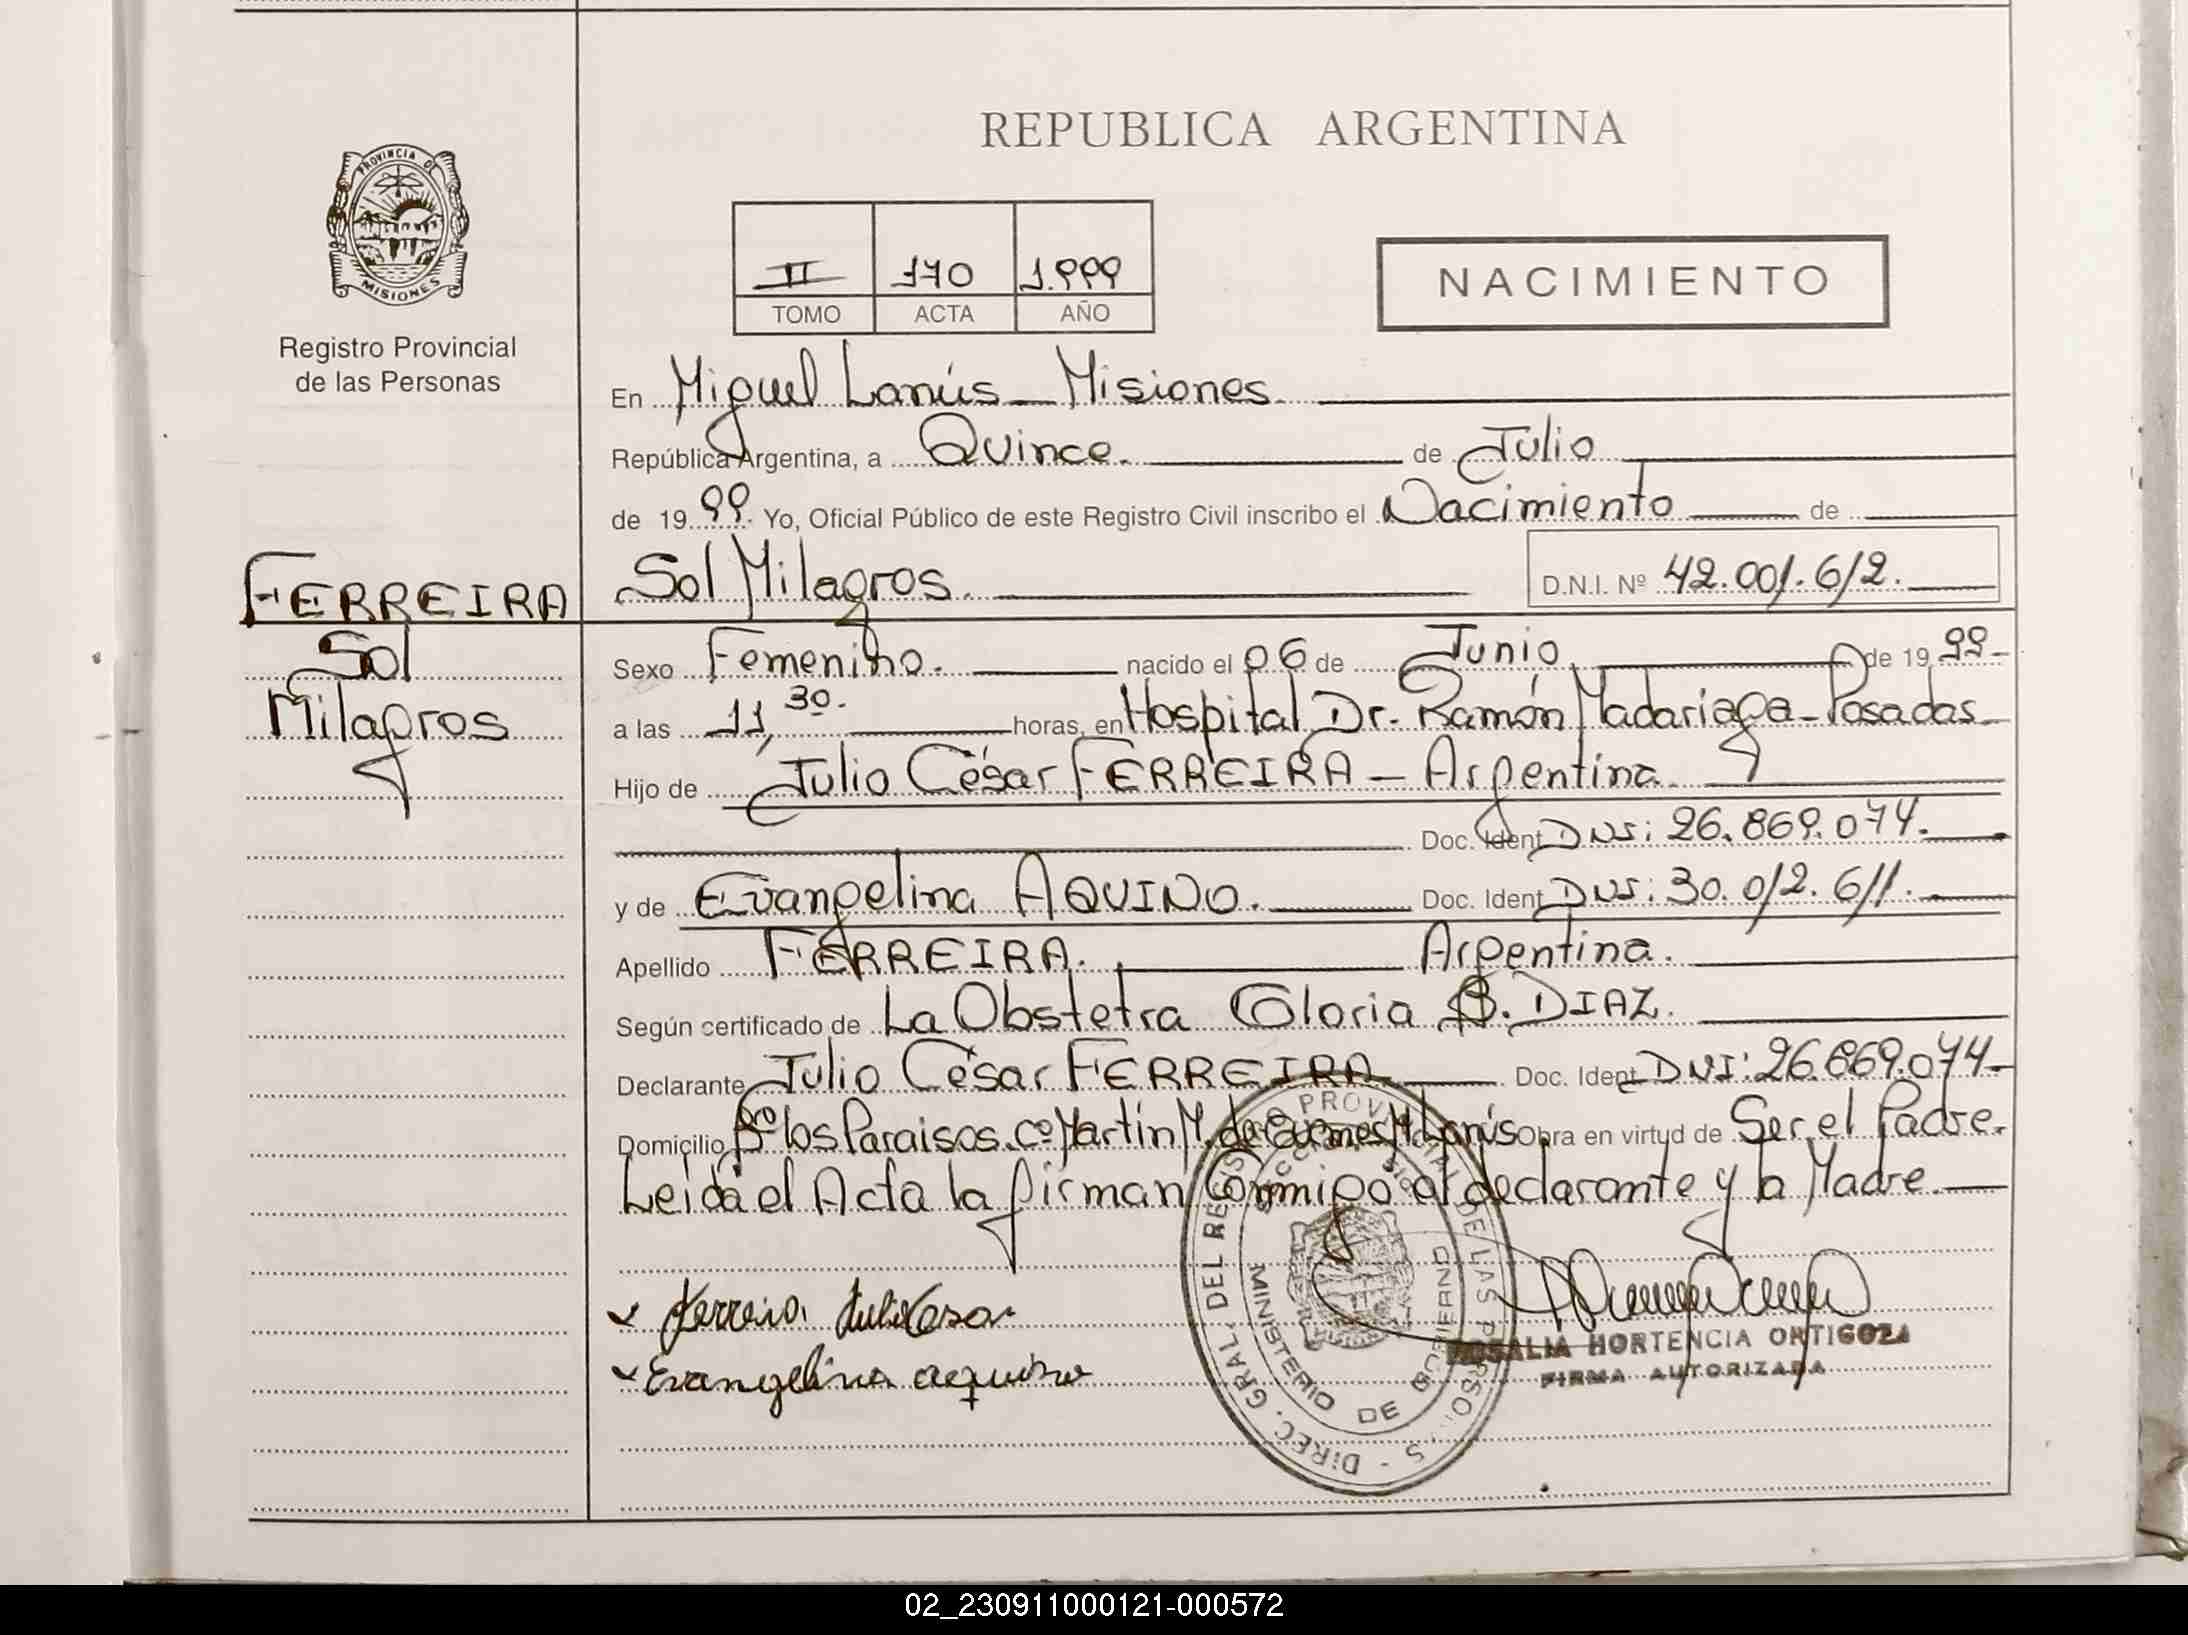 REPUBLICA ARGENTINA
PROVINCIA DE
MISIONES
Registro Provincial
de las Personas
II 170 1.999
TOMO ACTA AÑO
NACIMIENTO
En Miguel Lanús - Misiones
República Argentina, a Quince. de Julio
de 1999. Yo, Oficial Público de este Registro Civil inscribo el Nacimiento de
FERREIRA
Sol
Milagros
Sol Milagros. D.N.I. Nº 42.001.612.
Sexo Femenino. nacido el 06 de Junio de 1999-
a las 11,30. horas, en Hospital Dr. Ramón Madariaga - Posadas
Hijo de Julio César FERREIRA - Argentina.
Doc. Ident DNI: 26.869.074.
y de Evangelina AQUINO. Doc. Ident DNI: 30.012.611.
Apellido FERREIRA. Argentina.
Según certificado de La Obstetra Gloria B. DIAZ.
Declarante Julio César FERREIRA Doc. Ident DNI: 26.869.074-
Domicilio Bº los Paraisos. Cº Martín M. de M. Lanús Obra en virtud de Ser el Padre.
Leida el Acta la firman Conmigo el declarante y la Madre.
Ferreira Julio Cesar
Evangelina aquino
DIREC. GRAL. DEL REGISTRO PROVINCIAL DE LAS PERSONAS
MINISTERIO DE GOBIERNO
ROSALIA HORTENCIA ORTIGOZA
FIRMA AUTORIZADA
02_230911000121-000572